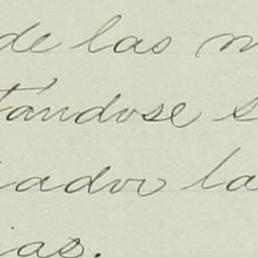 de las m
tándose s
iador la
ias.